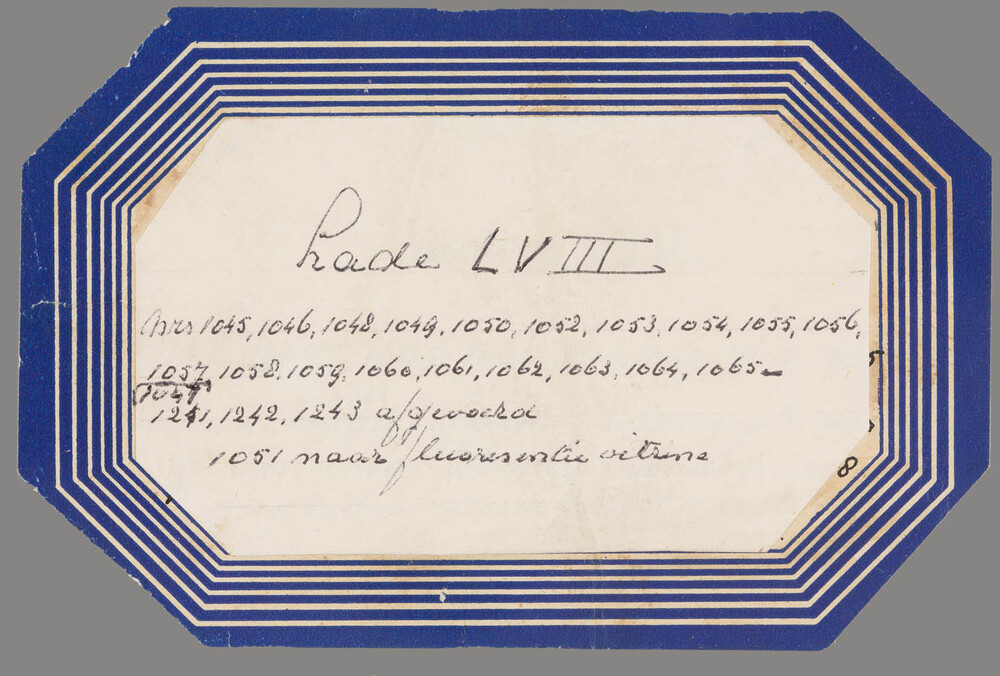 Lade LVIII
Nrs 1045, 1046, 1048, 1049, 1050, 1052, 1053, 1054, 1055, 1056,
1057, 1058, 1059, 1060, 1061, 1062, 1063, 1064, 1065
1047
1241, 1242, 1243 afgevoerd
1051 naar fluoresentie vitrine
5
8